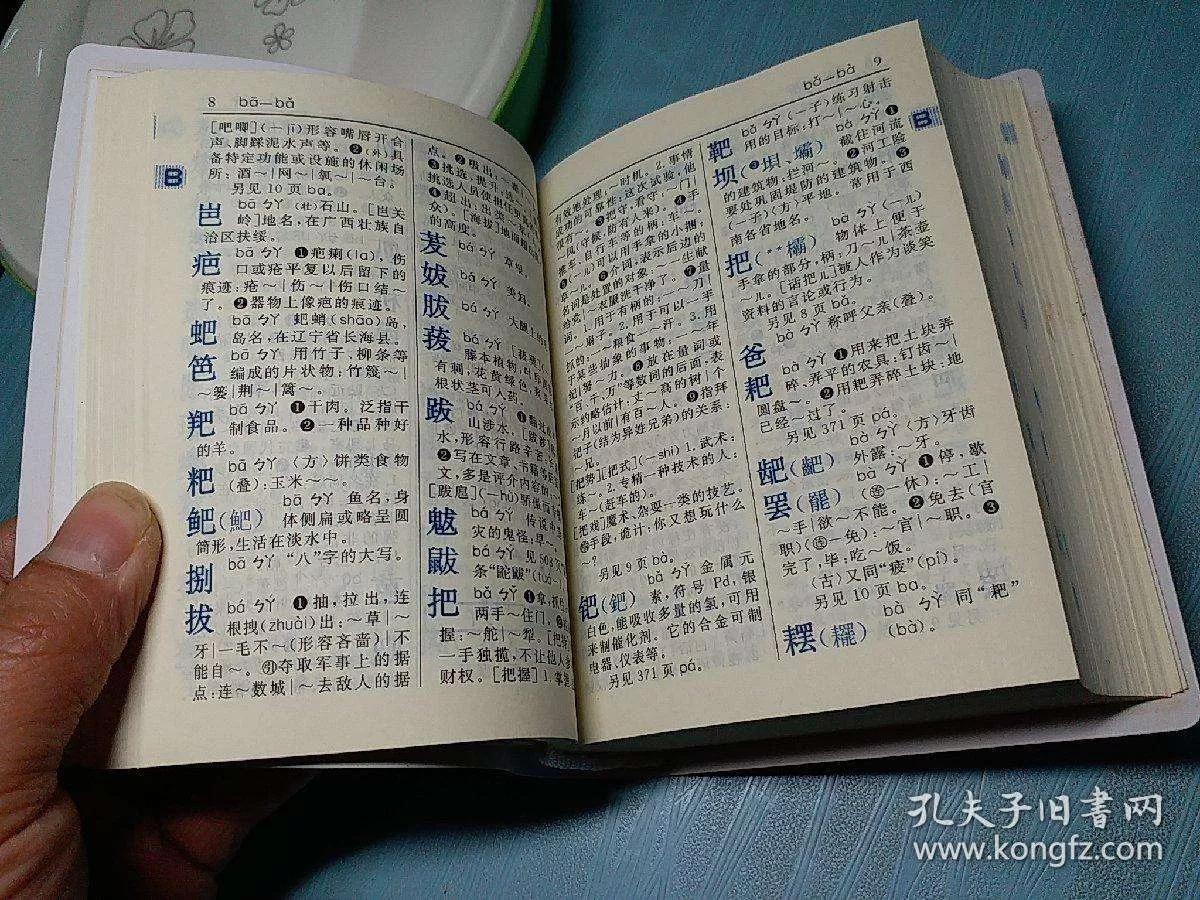 8 bā—bǎ
[吧唧](－jī)形容嘴唇开合
声、脚踩泥水声等。❷(外)具
备特定功能或设施的休闲场
所：酒～|网～|氧～|～台。
另见10页ba。
B
岜 bā ㄅㄚ (壮)石山。[岜关
岭]地名，在广西壮族自
治区扶绥。
疤 bā ㄅㄚ ❶疤瘌(la)，伤
口或疮平复以后留下的
痕迹：疮～|伤～|伤口结～
了。❷器物上像疤的痕迹。
蚆 bā ㄅㄚ 蚆蛸(shāo)岛，
岛名，在辽宁省长海县。
笆 bā ㄅㄚ 用竹子、柳条等
编成的片状物：竹篾～|
～篓|荆～|篱～。
羓 bā ㄅㄚ ❶干肉。泛指干
制食品。❷一种品种好
的羊。
粑 bā ㄅㄚ 〈方〉饼类食物
(叠)：玉米～～。
鲃(䰾) bā ㄅㄚ 鱼名，身
体侧扁或略呈圆
筒形，生活在淡水中。
捌 bā ㄅㄚ “八”字的大写。
拔 bá ㄅㄚˊ ❶抽，拉出，连
根拽(zhuài)出：～草|～
牙|一毛不～(形容吝啬)|不
能自～。㊀夺取军事上的据
点：连～数城|～去敌人的据
点。❷吸出：～毒
❸挑选，提升
挑选人员使担任更
❹超出：出类～
众)。[海拔]地面超
的高度。
茇 bá ㄅㄚˊ 草根。
妭 bá ㄅㄚˊ 美妇。
胈 bá ㄅㄚˊ 大腿上的
菝 bá ㄅㄚˊ [菝葜]
藤本植物，叶
有刺，花黄绿色，
根状茎可入药。
跋 bá ㄅㄚˊ ❶翻过
山涉水。[跋涉
水，形容行路辛苦
❷写在文章、书籍等
文，多是评介内容的
[跋扈](－hù)骄傲
魃 bá ㄅㄚˊ 传说中
灾的鬼怪：旱～。
鼥 bá ㄅㄚˊ 见504
条“鼧鼥”(tuó－
把 bǎ ㄅㄚˇ ❶拿，抓住
两手～住门。
握：～舵|～犁。[把持
一手独揽，不让他人
财权。[把握]1.掌握
bǎ—bà 9
2.事情
有效地处理，～时机。
成功的可靠性：这次试验，他
很有～。❸把守，看守：～门
～风(守候，防有人来)。❹手
推车、自行车等的柄：车～。
❺(～儿)可以用手拿的小捆：
草～儿。❻介词，表示后边的
名词是处置的对象：～一生献
给党|～衣服洗干净了。❼量
词。1.用于有柄的：一～刀|
一～扇子。2.用于可以一手
抓的：一～粮食|一～汗。3.用
于某些抽象的事物：一～年
纪|努～力。❽放在量词或
“百、千、万”等数词的后面，表
示约略估计：丈～高的树|个
～月以前|有百～人。❾指拜
把子(结为异姓兄弟)的关系：
～兄。
[把势][把式](－shi) 1.武术：
练～。2.专精一种技术的人：
车～(赶车的)。
[把戏]魔术、杂耍一类的技艺。
手段，诡计：你又想玩什么
～？
另见9页bà。
钯(鈀) bǎ ㄅㄚˇ 金属元
素，符号 Pd，银
白色，能吸收多量的氢，可用
来制催化剂。它的合金可制
电器、仪表等。
另见371页pá。
靶 bǎ ㄅㄚˇ (～子)练习射击
用的目标：打～|～心。
坝(❸坝、壩) bà ㄅㄚˋ ❶
截住河流
的建筑物：拦河～。❷河工险
要处巩固堤防的建筑物。❸
(～子)〈方〉平地。常用于西
南各省地名。
B
把(**欛) bà ㄅㄚˋ (～儿)
物体上便于
手拿的部分，柄：刀～儿|茶壶
～儿。[话把儿]被人作为谈笑
资料的言论或行为。
另见8页bǎ。
爸 bà ㄅㄚˋ 称呼父亲(叠)。
耙 bà ㄅㄚˋ ❶用来把土块弄
碎、弄平的农具：钉齿～|
圆盘～。❷用耙弄碎土块：地
已经～过了。
另见371页pá。
龅(齙) bà ㄅㄚˋ 〈方〉牙齿
外露：～牙。
罢(罷) bà ㄅㄚˋ ❶停，歇
(㊣一休)：～工|
～手|欲～不能。❷免去(官
职)(㊣一免)：～官|～职。❸
完了，毕：吃～饭。
〈古〉又同“疲”(pí)。
另见10页ba。
𥻗(䎱) bà ㄅㄚˋ 同“耙”
(bà)。
孔夫子旧書网
www.kongfz.com